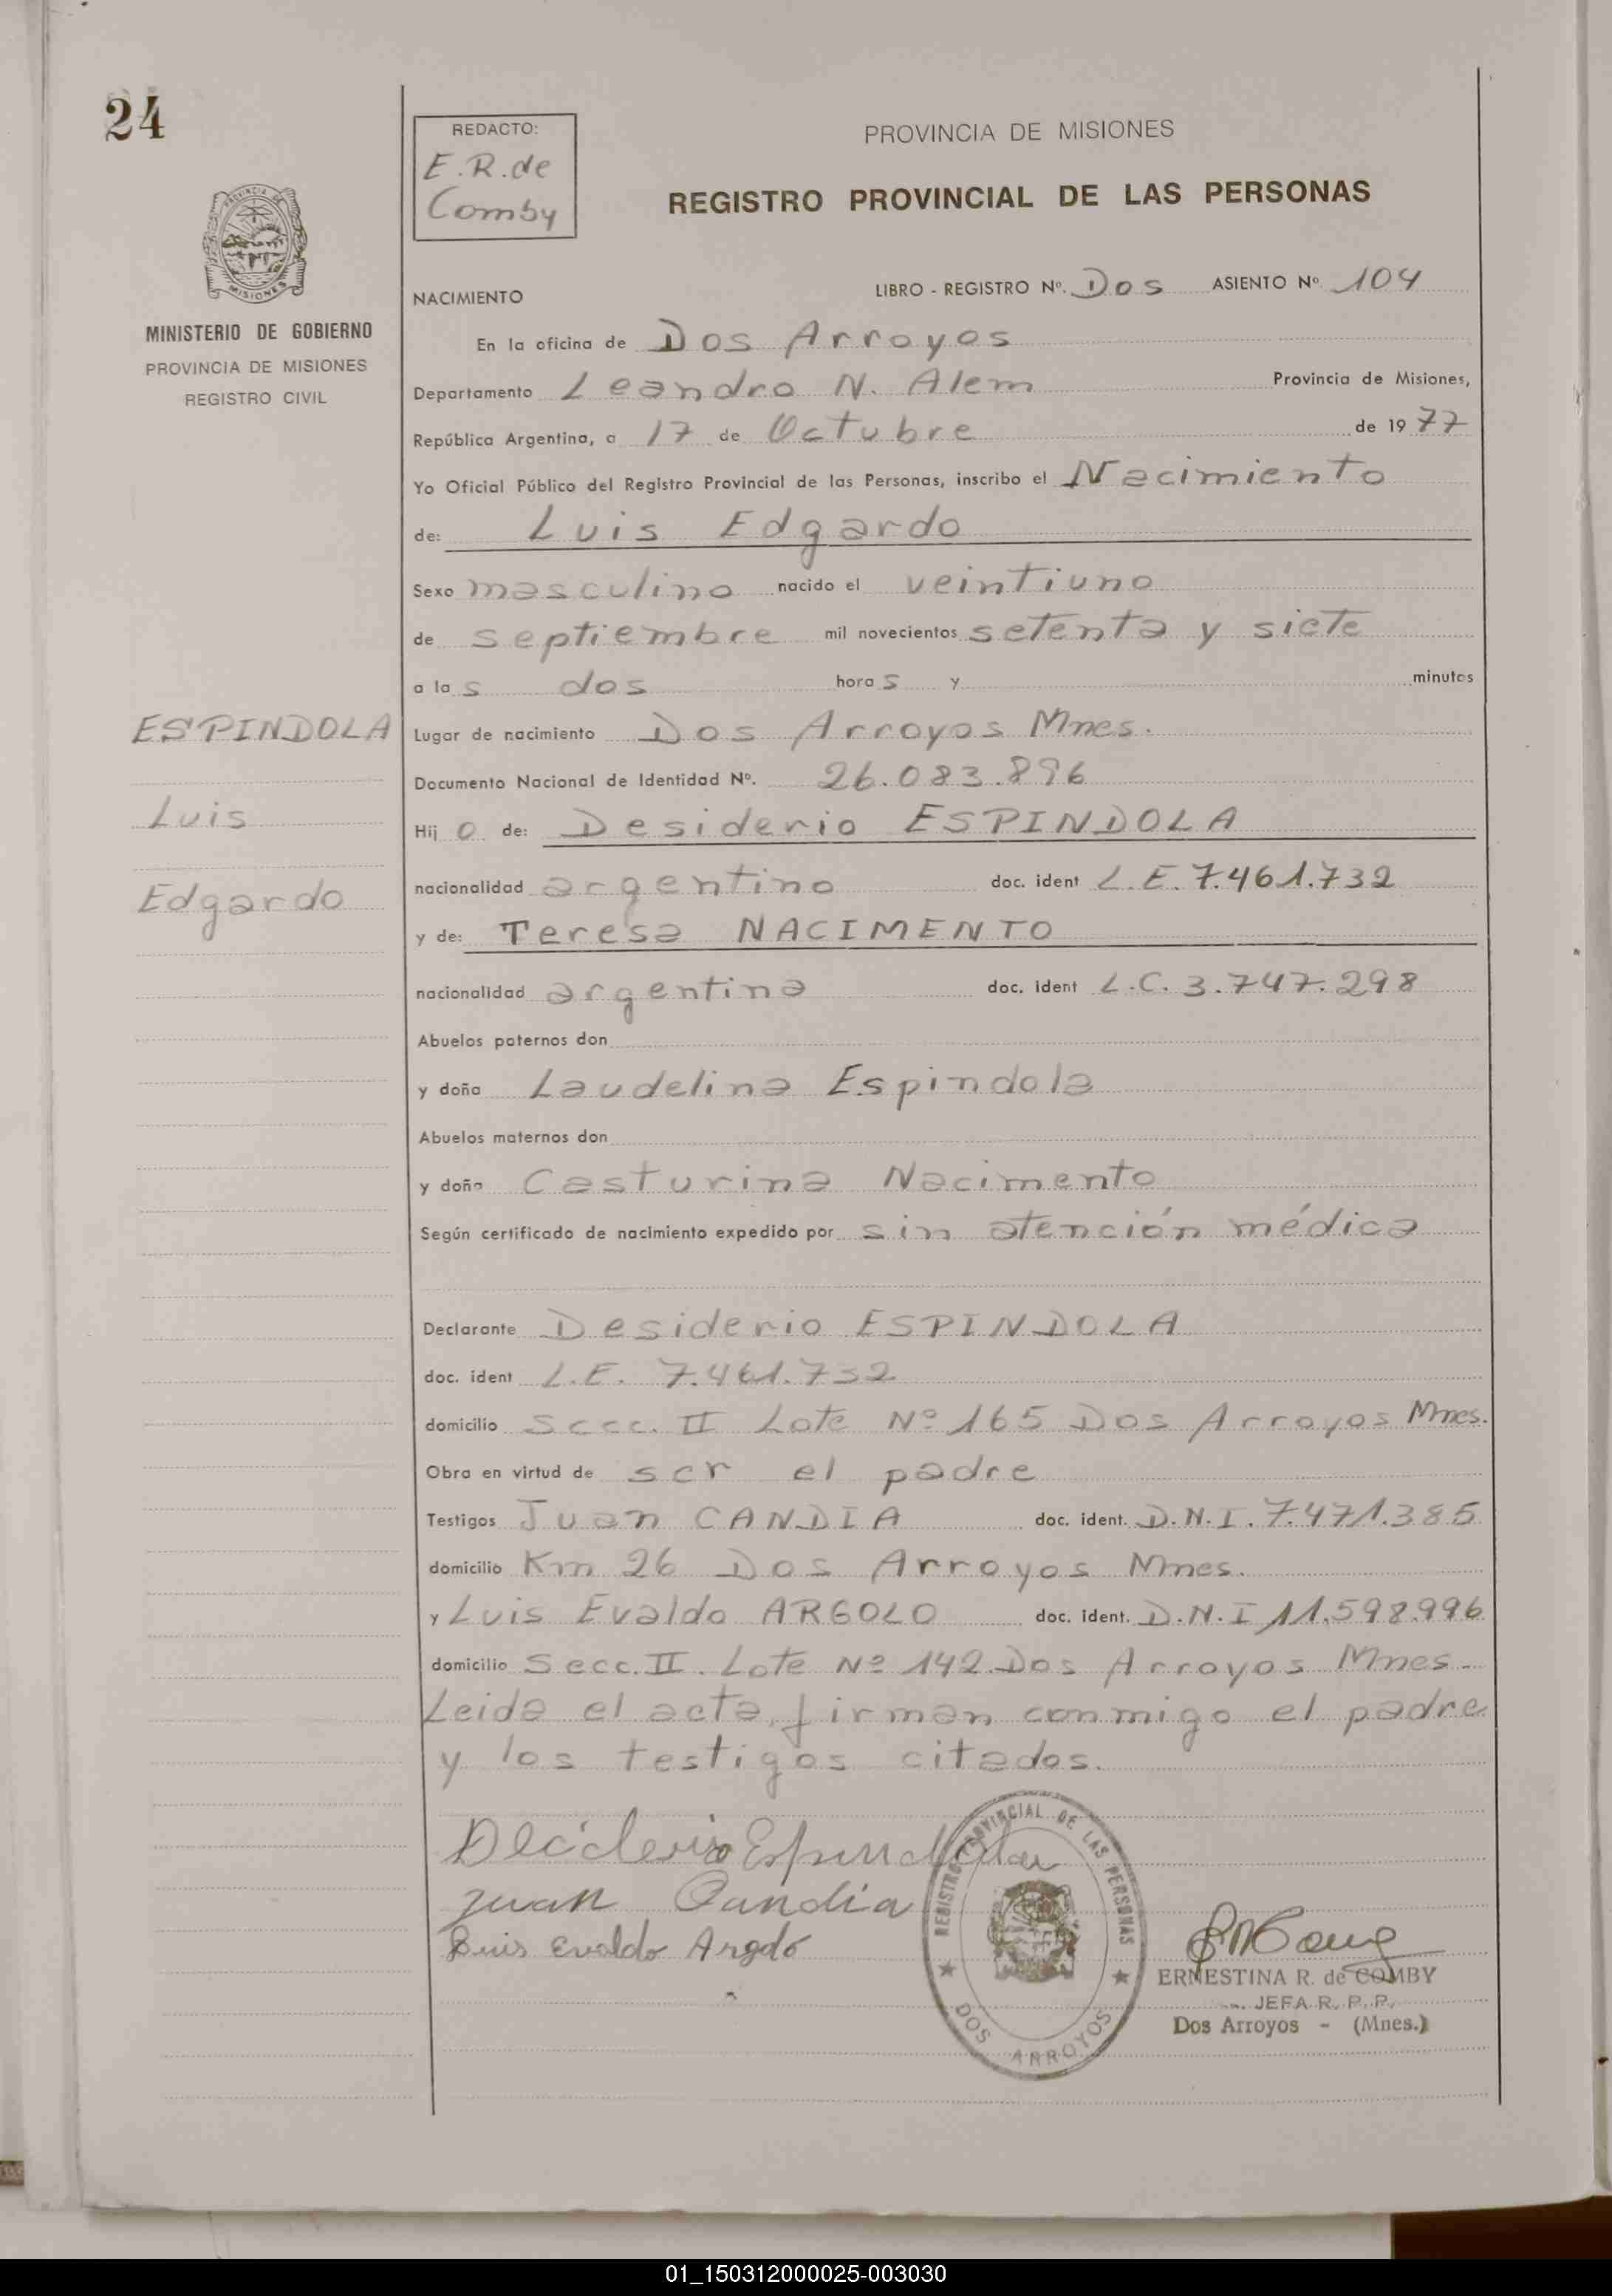 24
REDACTO:
E.R. de
Comby
PROVINCIA DE MISIONES
REGISTRO PROVINCIAL DE LAS PERSONAS
PROVINCIA DE
MISIONES
MINISTERIO DE GOBIERNO
PROVINCIA DE MISIONES
REGISTRO CIVIL
NACIMIENTO
LIBRO - REGISTRO Nº. Dos ASIENTO Nº 104
En la oficina de Dos Arroyos
Departamento Leandro N. Alem Provincia de Misiones,
República Argentina, a 17 de Octubre de 1977
Yo Oficial Público del Registro Provincial de las Personas, inscribo el Nacimiento
de: Luis Edgardo
Sexo masculino nacido el veintiuno
de septiembre mil novecientos setenta y siete
a las dos horas y minutos
ESPINDOLA
Luis
Edgardo
Lugar de nacimiento Dos Arroyos Mnes.
Documento Nacional de Identidad Nº. 26.083.896
Hijo de: Desiderio ESPINDOLA
nacionalidad argentino doc. ident L.E. 7.461.732
y de: Teresa NACIMENTO
nacionalidad argentina doc. ident L.C. 3.747.298
Abuelos paternos don
y doña Laudelina Espindola
Abuelos maternos don
y doña Casturina Nacimento
Según certificado de nacimiento expedido por sin atención médica
Declarante Desiderio ESPINDOLA
doc. ident L.E. 7.461.732
domicilio Secc. II Lote Nº 165 Dos Arroyos Mnes.
Obra en virtud de ser el padre
Testigos Juan CANDIA doc. ident. D.N.I. 7.471.385
domicilio Km 26 Dos Arroyos Mnes.
y Luis Evaldo ARGOLO doc. ident. D.N.I 11.598.996
domicilio Secc. II. Lote Nº 142 Dos Arroyos Mnes.
Leida el acta, firman conmigo el padre
y los testigos citados.
Deciderio Espindola
Juan Candia
Luis Evaldo Argolo
REGISTRO PROVINCIAL DE LAS PERSONAS
DOS ARROYOS
ERNESTINA R. de COMBY
JEFA R. P. P.
Dos Arroyos - (Mnes.)
01_150312000025-003030